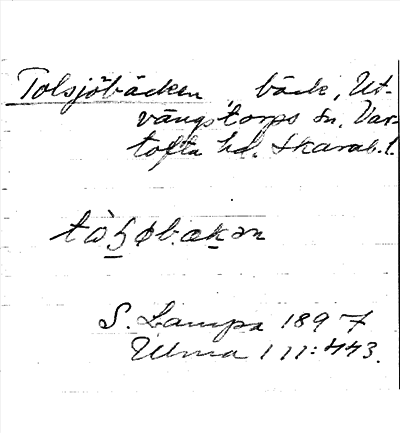 Tolsjöbäcken, bäck, Ut-
vängstorps sn. Var-
tofta hd. Skarab. l.
S. Lampa 1897
Ulma 111:443.